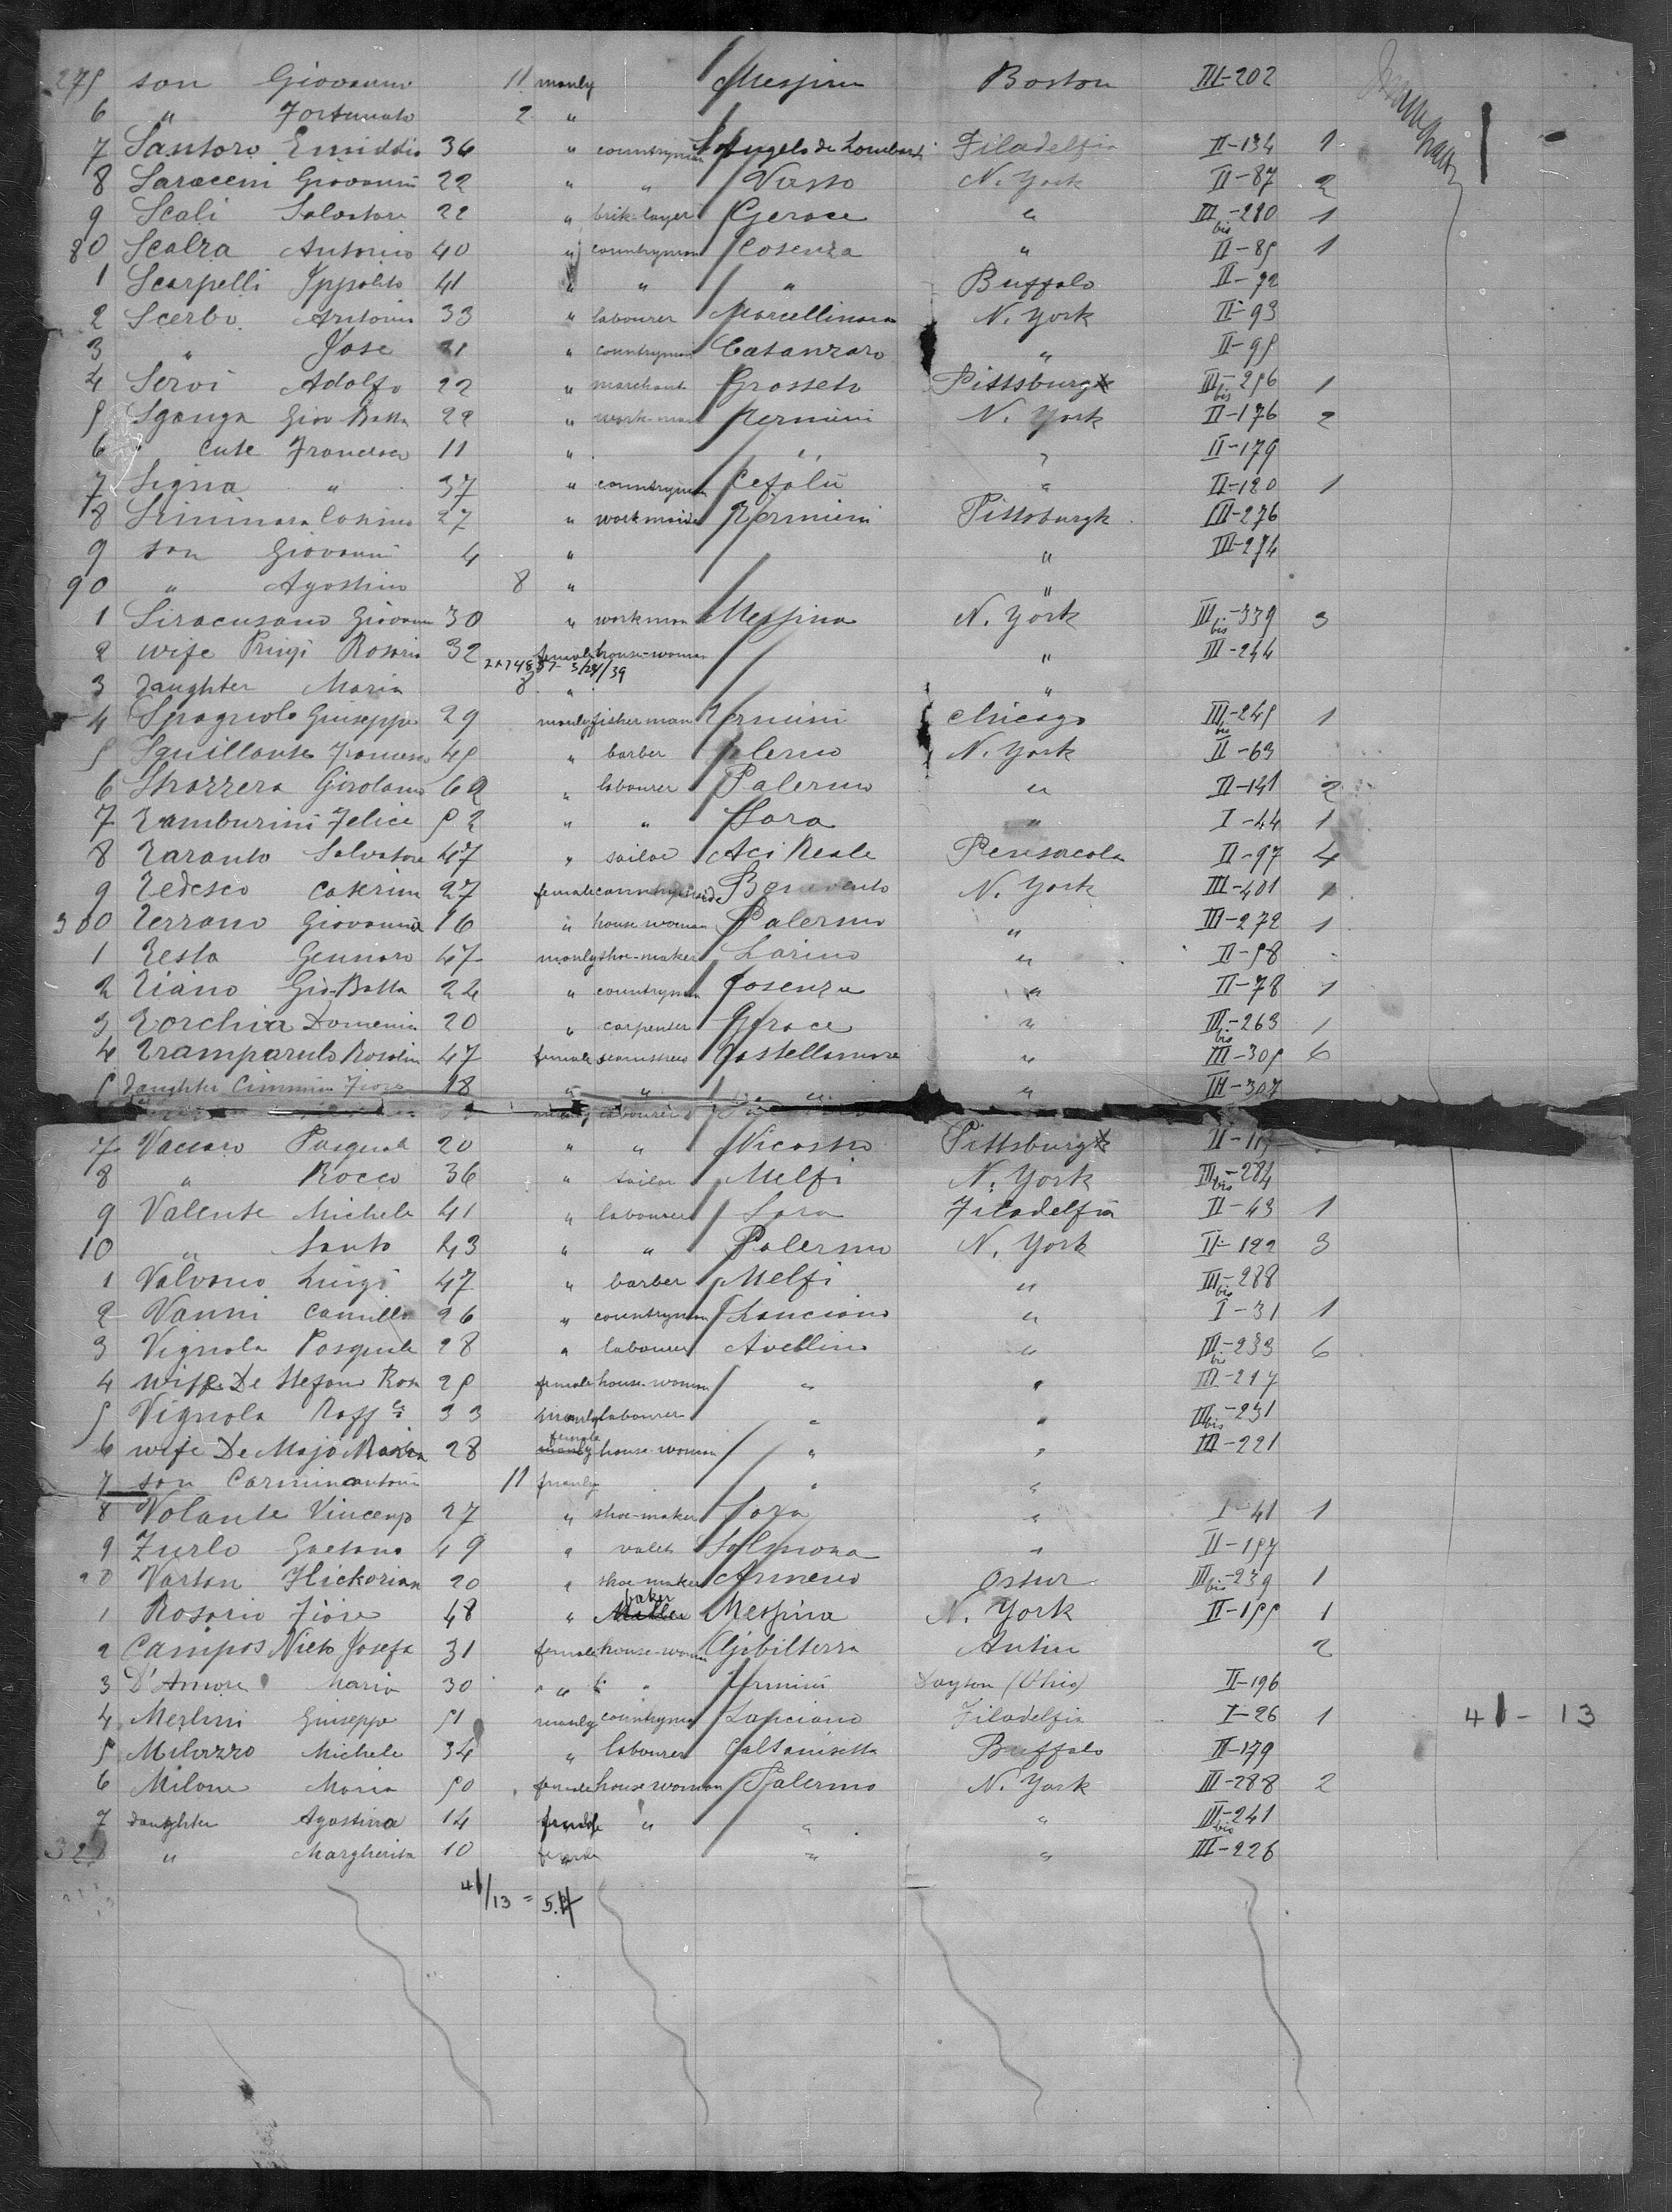 275 son Giovanni 11 manly Messina Boston III-202
6 " Fortunato 2 "
7 Santoro Emiddio 36 " countryman S. Angelo de Lombardi Filadelfia II-134 1
8 Saraceni Giovanni 22 " " Vasto N. York II-87 2
9 Scali Salvatore 22 " brik-layer Gerace " III bis-210 1
80 Scalza Antonio 40 " countryman Cosenza " II-85 1
1 Scarpelli Ippolito 41 " " " Buffalo II-92
2 Scerbo Antonio 33 " labourer Marcellinara N. York II-93
3 " Jose 21 " countryman Catanzaro " II-95
4 Servi Adolfo 22 " marchant Grosseto Pittsburg III bis-256 1
5 Sganga Giov Batta 22 " work-man Termini N. York II-176 2
6 " Cute Francesco 11 " " " II-179
7 Signa " 37 " countryman Cefalù " II-180 1
8 Siminara Cosimo 27 " workmaide Termini Pittsburgk III-276
9 son Giovanni 4 " " III-274
90 " Agostino 8 " "
1 Siracusano Giovanni 30 " workman Messina N. York III bis-339 3
2 wife Pringi Rosaria 32 female house-woman " III-244
3 daughter Maria 8 " "
4 Spagnolo Giuseppe 29 manly fisherman Termini Chicago III bis-245 1
5 Squillante Francesco 45 " barber Palermo N. York II-63
6 Strazzera Girolamo 62 " labourer Palermo " II-141 2
7 Tamburini Felice 52 " " Sora " I-44 1
8 Taranto Salvatore 47 " sailor Aci Reale Pensacola II-97 4
9 Tedesco Caterina 27 female countrymaide Benevento N. York III-401 1
300 Terrano Giovanna 16 " house woman Palermo " III-272 1
1 Testa Gennaro 47 manly shoe-maker Larino " II-58
2 Tiano Gio-Batta 22 " countryman Cosenza " II-78 1
3 Torchia Domenico 20 " carpenter Gerace " III bis-263 1
4 Tramparulo Rosalia 47 female seamstress Castellamare " III-305 6
5 daughter Cimmino Fiore 18 " " " " III-307
manly labourer
7 Vaccaro Pasquale 20 " " Nicastro Pittsburg
8 " Rocco 36 " sailor Melfi N. York III bis-284
9 Valente Michele 41 " labourer Sora Filadelfia II-43 1
10 " Santo 43 " " Palermo N. York II-122 3
1 Valvano Luigi 47 " barber Melfi " III bis-288
2 Vanni Camillo 26 " countryman Lanciano " I-31 1
3 Vignola Pasquale 28 " labourer Avellino " III bis-233 6
4 wife De Stefano Rosa 25 female house-woman " " III-217
5 Vignola Raff le 33 manly labourer " " III bis-231
6 wife De Majo Maria 28 female house-woman " " III-221
7 son Carminantonio 11 manly " "
8 Volante Vincenzo 27 " shoe-maker Sora " I-41 1
9 Zurlo Gaetano 49 " valet Solmona " II-157
20 Vartan Hickorian 20 " shoe maker Armeno Ostur III bis-239 1
1 Rosario Fiore 48 " baker Messina N. York II-155 1
2 Campos Nieto Josefa 31 female house-woman Gibilterra Antin 2
3 D'Amore Maria 30 " " Termini Dayton (Ohio) II-196
4 Merlini Giuseppe 51 manly countryman Lanciano Filadelfia I-26 1 41-13
5 Milazzo Michele 34 " labourer Caltanisetta Buffalo II-179
6 Milone Maria 50 female house woman Palermo N. York III-288 2
7 daughter Agostina 14 female " " " III bis-241
328 " Margherita 10 female " " III-226
41/13 =